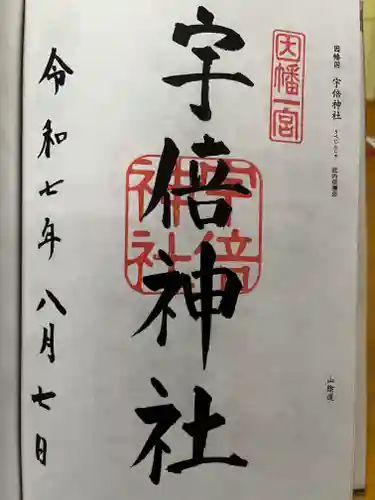 因幡国 宇倍神社
うべじんじゃ
山陰道
因幡一宮
宇倍神社
宇倍
神社
令和七年八月七日